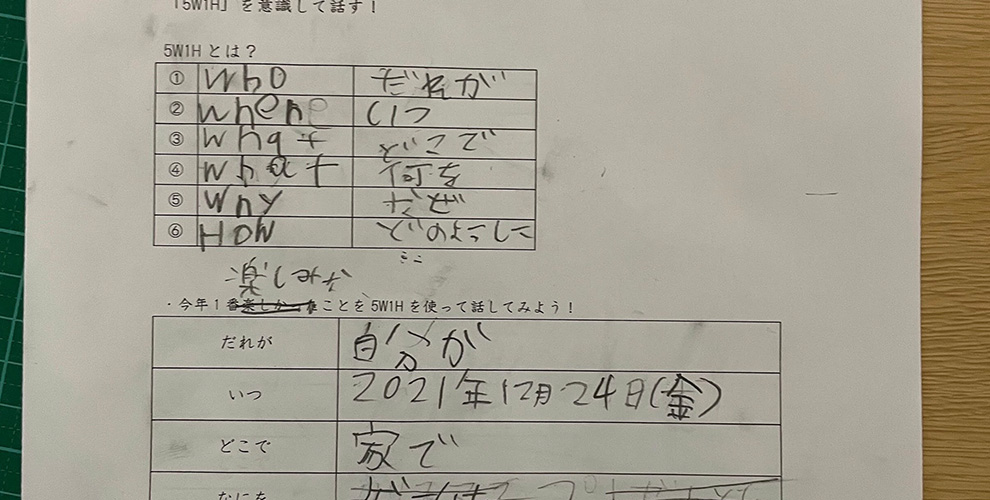 「5W1H」を意識して話す！
5W1Hとは？
① Who だれが
② When いつ
③ What どこで
④ What 何を
⑤ Why なぜ
⑥ How どのようにし
楽しみな
・今年1番楽しかったことを5W1Hを使って話してみよう！
だれが 自分が
いつ 2021年12月24日(金)
どこで 家で
なにを